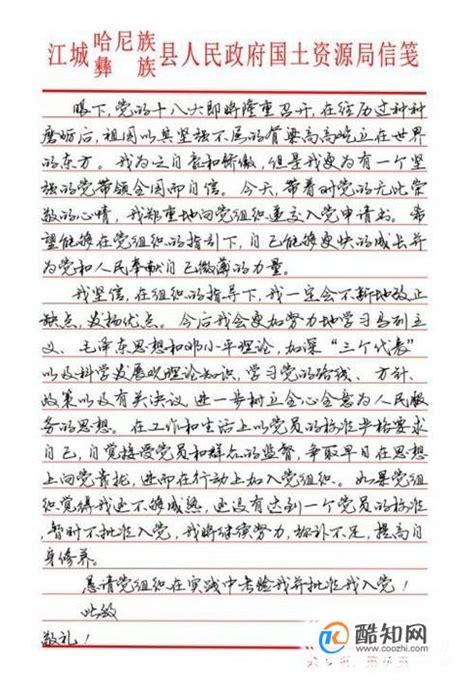 江城哈尼族彝族县人民政府国土资源局信笺
眼下，党的十八大即将隆重召开，在经历过种种
磨砺后，祖国以其坚强不屈的脊梁高高屹立在世界
的东方。我为之自豪和骄傲，但是我更为有一个坚
强的党带领全国而自信。今天，带着对党的无比崇
敬的心情，我郑重地向党组织递交入党申请书。希
望能够在党组织的指引下，自己能够更快的成长并
为党和人民奉献自己微薄的力量。
我坚信，在组织的指导下，我一定会不断地改正
缺点，发扬优点。今后我会更加努力地学习马列主
义、毛泽东思想和邓小平理论，加深“三个代表”
以及科学发展观理论知识，学习党的路线、方针、
政策以及有关决议，进一步树立全心全意为人民服
务的思想。在工作和生活上以党员的标准严格要求
自己，自觉接受党员和群众的监督，争取早日在思想
上向党靠拢，进而在行动上加入党组织。如果党组
织觉得我还不够成熟，还没有达到一个党员的标准，
暂时不批准入党，我将继续努力，弥补不足，提高自
身修养。
恳请党组织在实践中考验我并批准我入党！
此致
敬礼！
酷知网
www.coozhi.com